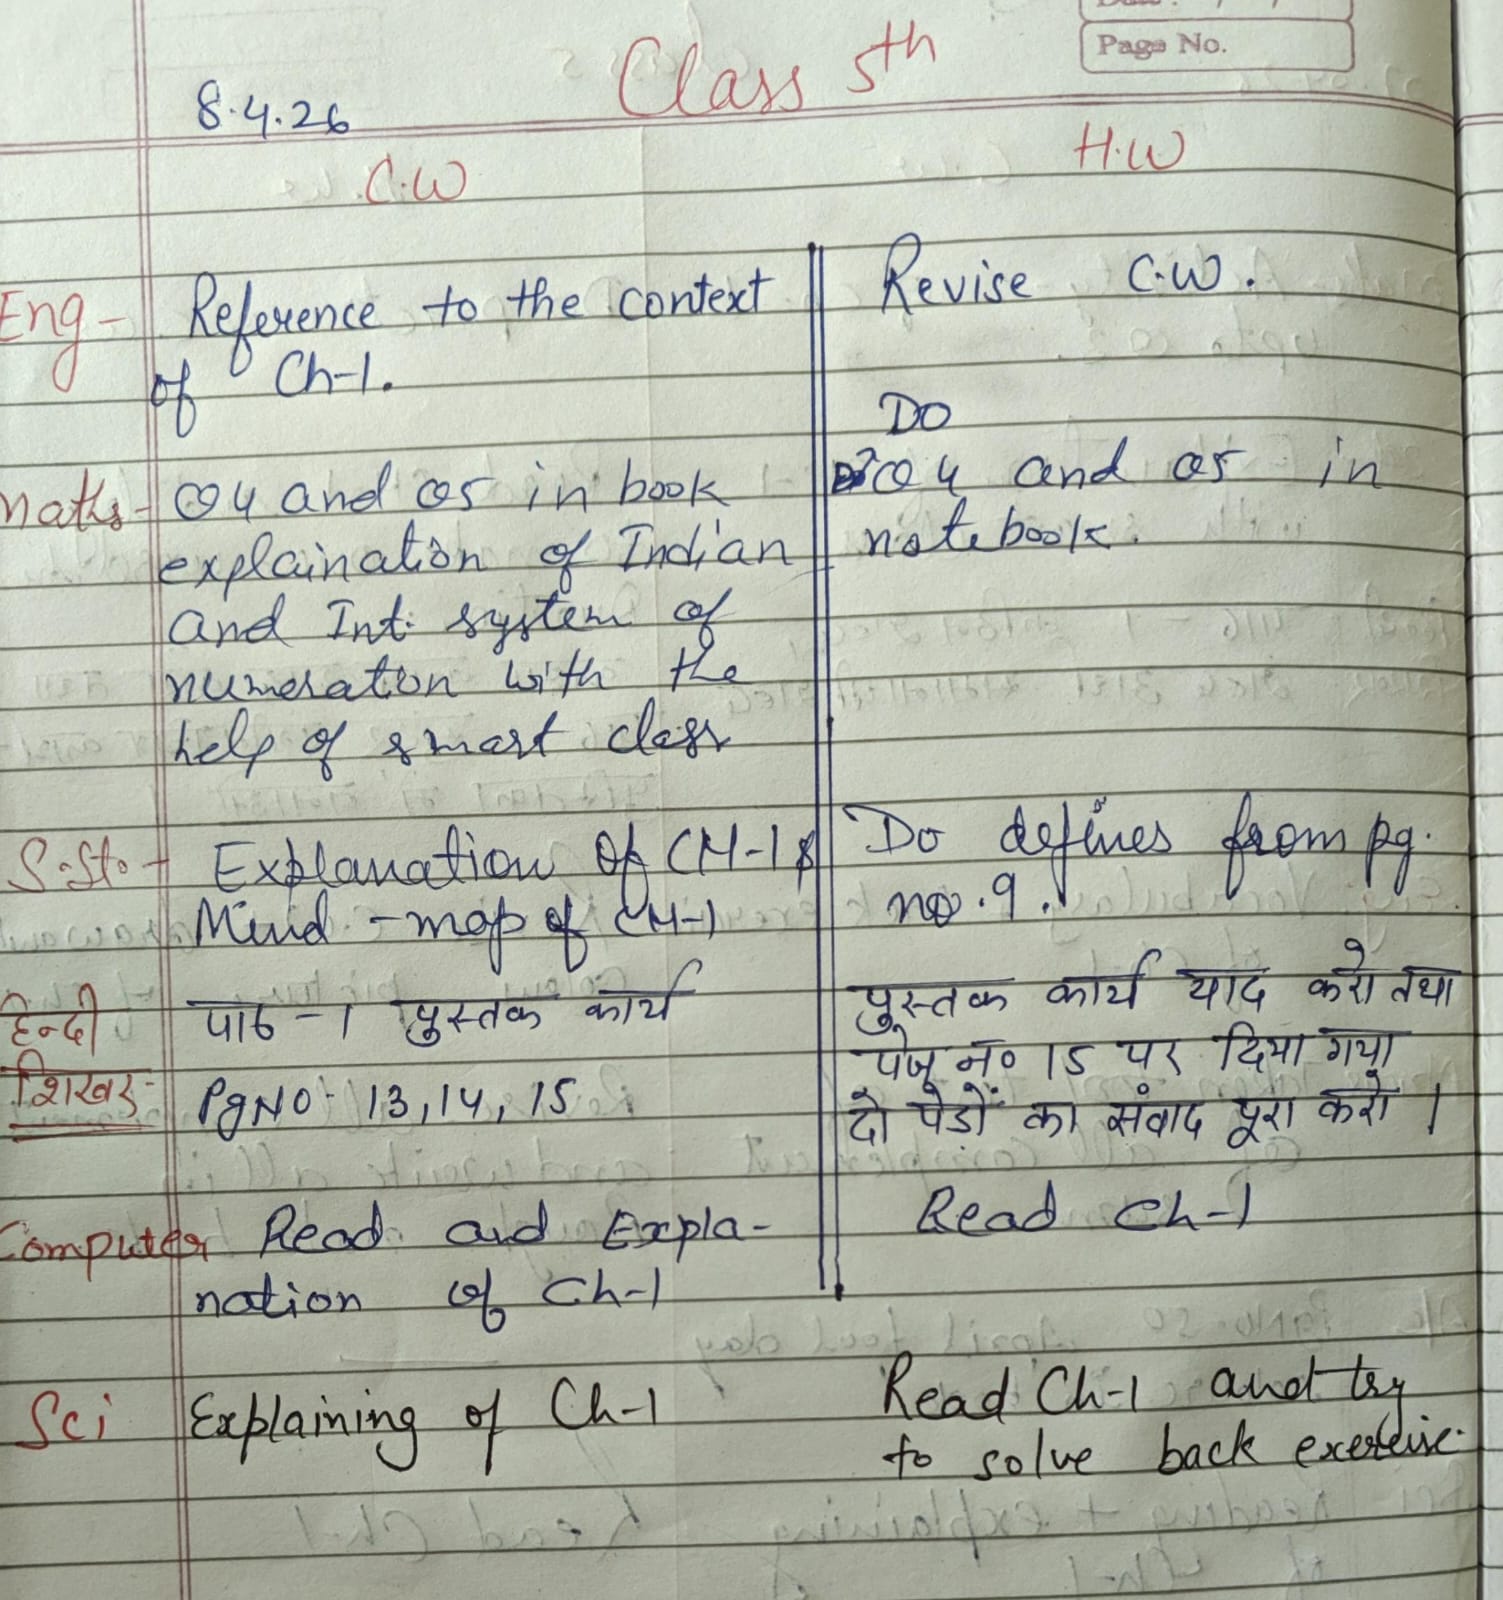 Page No.
Class 5th
8.4.26
C.W
H.W
Eng - Reference to the context
of Ch-1.
Revise C.W.
Maths - Q4 and Q5 in book
explaination of Indian
and Int. system of
numeration with the
help of smart class
Do
Q4 and Q5 in
notebook.
S.St. - Explanation of CH-1 &
Mind - map of CH-1
Do defines from pg.
no. 9.
हिन्दी पाठ - 1 पुस्तक कार्य
शिखर - Pg NO - 13, 14, 15
पुस्तक कार्य याद करो तथा
पेज न० 15 पर दिया गया
दो पेड़ों का संवाद पूरा करो ।
Computer Read and Expla-
nation of Ch-1
Read Ch-1
Sci Explaining of Ch-1
Read Ch-1 and try
to solve back